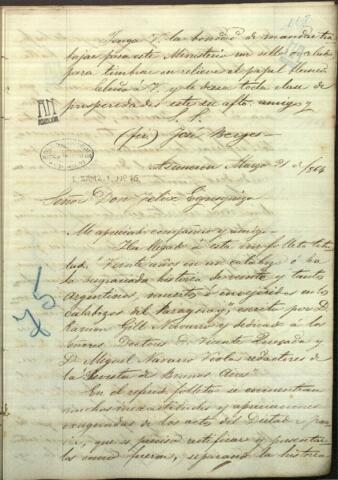 Tenga V. la bondad de mandar tra
bajar para este Ministerio un sello
para timbrar en relieve el papel
Saluda á V. y le desea toda clase de
prosperidades este su afto. amigo y
S. S.
(fir.) José Berges
Asuncion Marzo 21 de 1864
Señor Don Felix Egusquiza
Mi apreciado compatriota y amigo
Ha llegado á esta un folleto titu
lado "Veinte años en un calabozo ó sea
la desgraciada historia de veinte y tantos
Argentinos, muertos ó envejecidos en los
calabozos del Paraguay", escrito por D.
Ramon Gill Navarro y dedicado á los
Señores Doctores D. Vicente Quesada y
D. Miguel Navarro Viola redactores de
la "Revista de Buenos Aires"
En el referido folleto se encuentran
muchas inexactitudes y apreciaciones
exageradas de los actos del Dictador
que es preciso rectificar y presentar
los como fueron, separando la historia
75